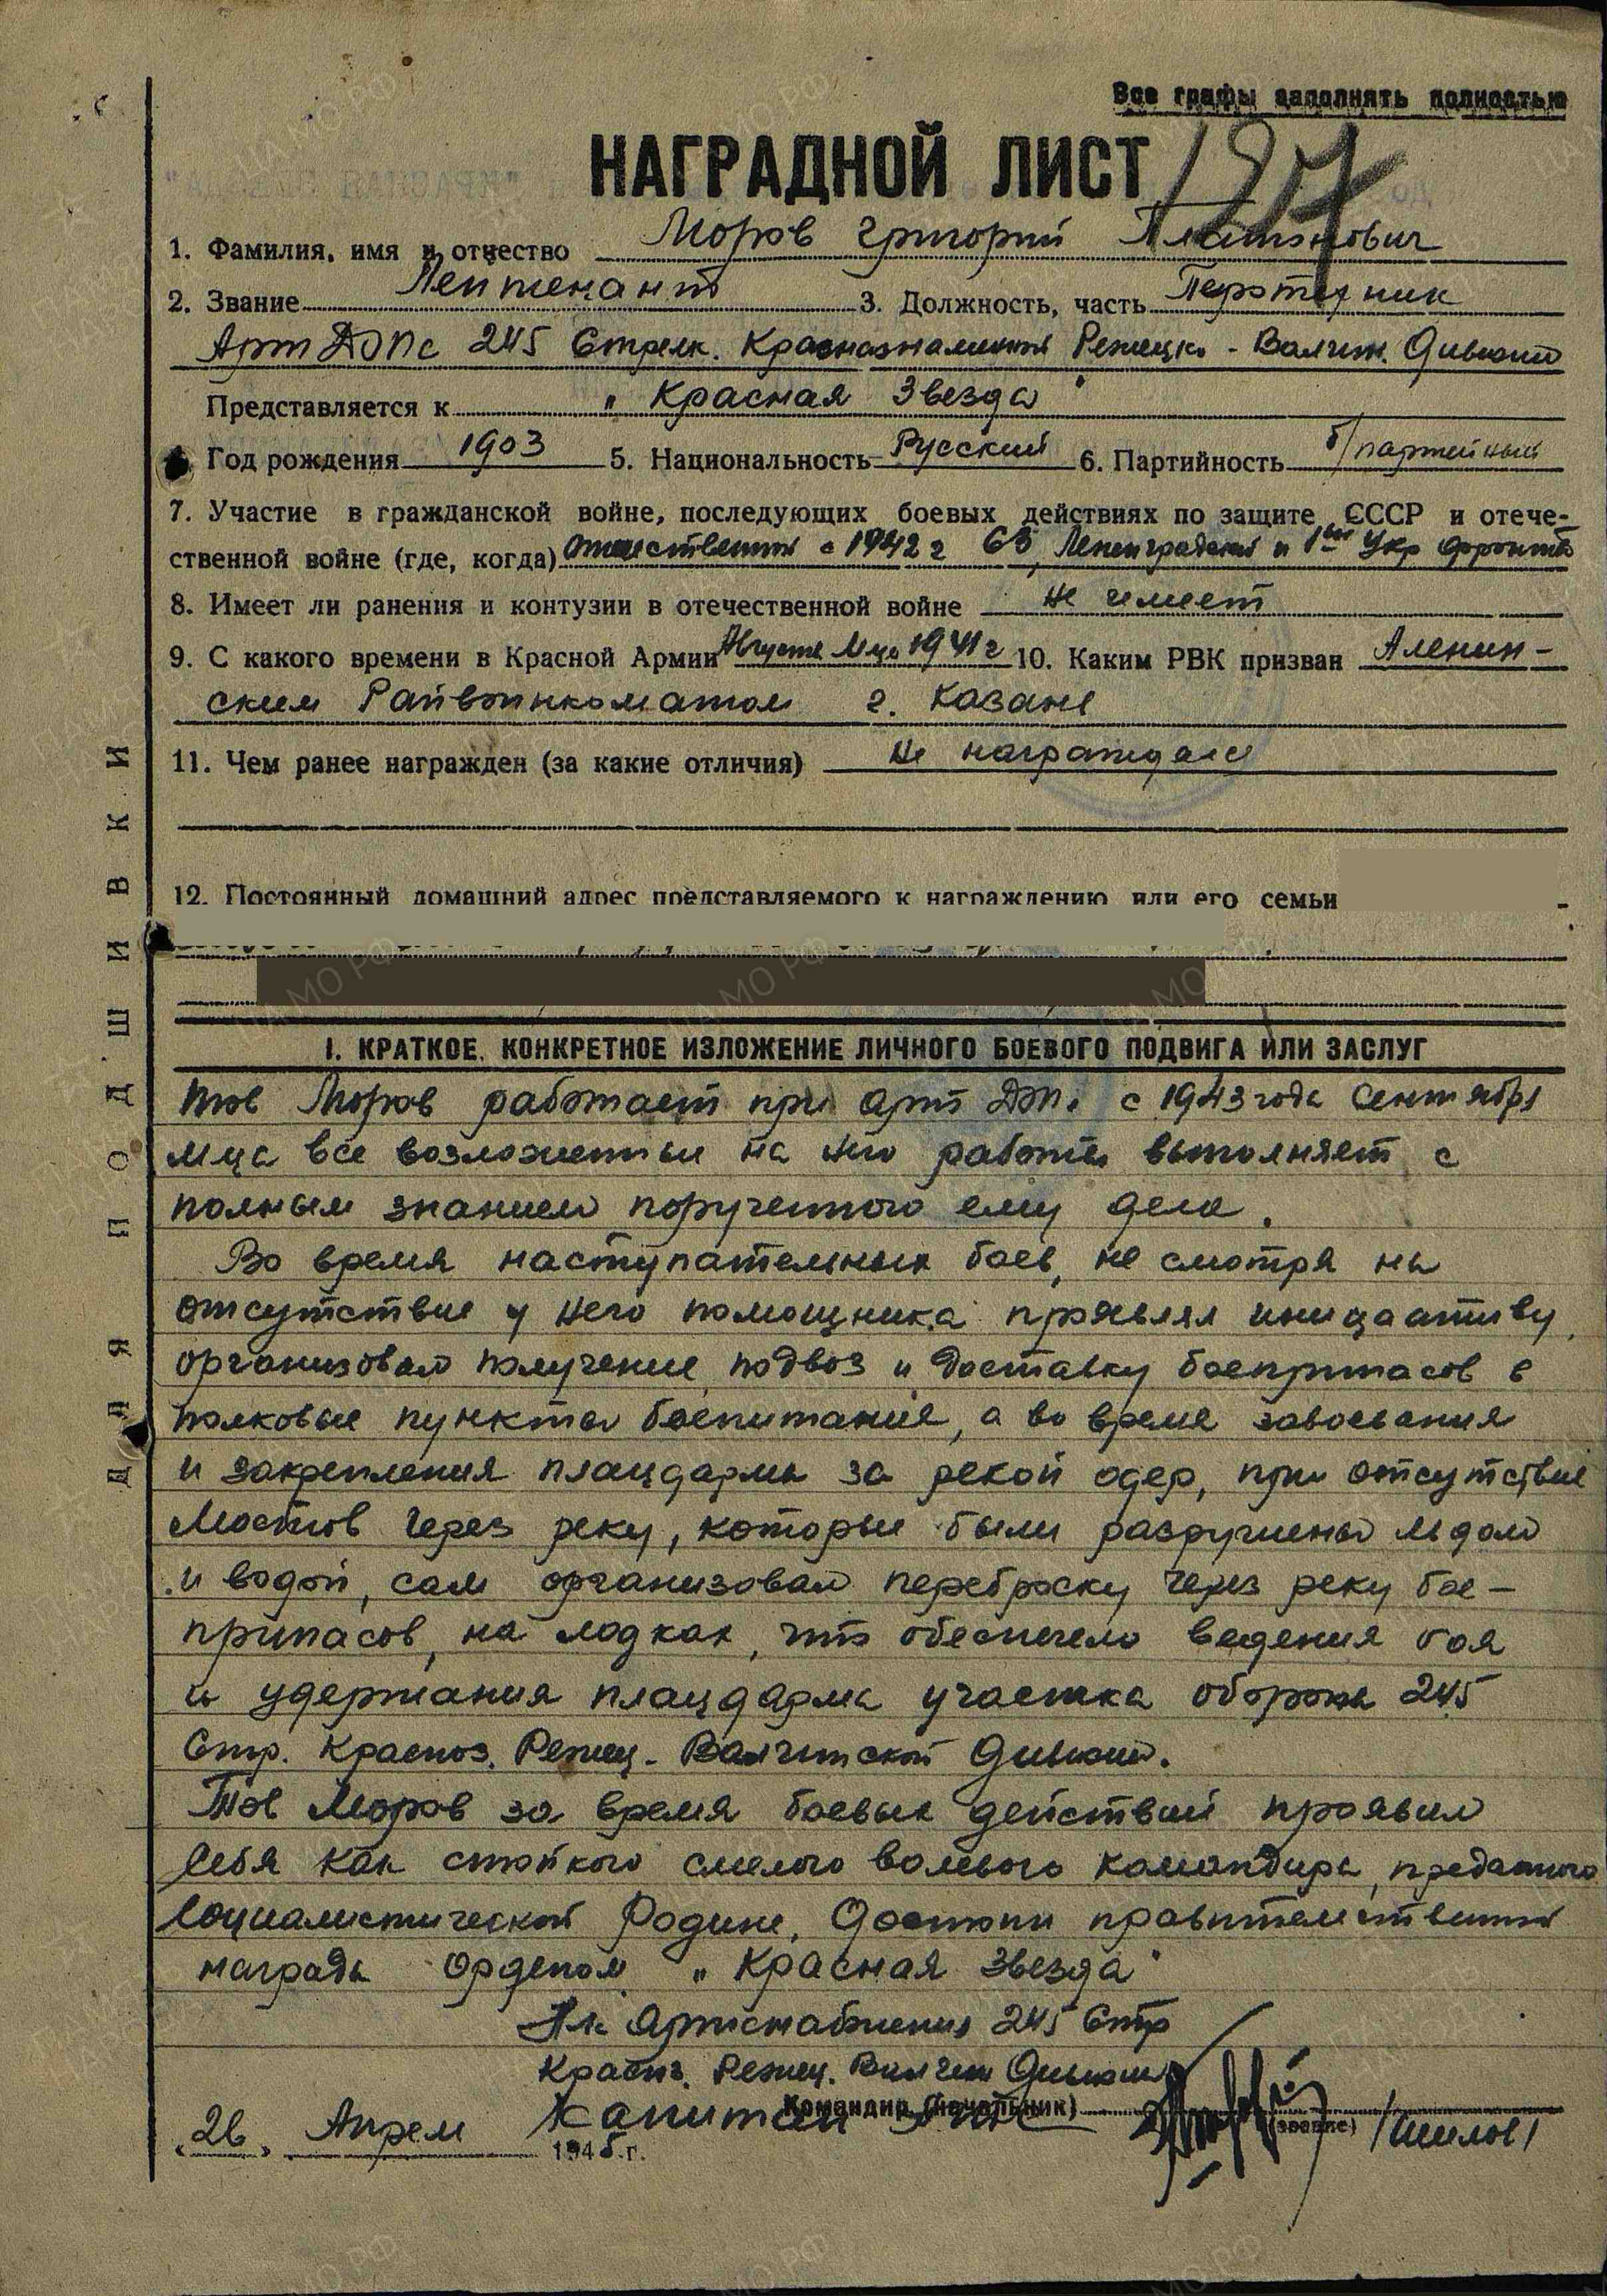 Все графы заполнять полностью
НАГРАДНОЙ ЛИСТ
1. Фамилия, имя и отчество Моров Григорий Платонович
2. Звание Лейтенант 3. Должность, часть Перотехник
Арт ДОПе 245 Стрелк. Краснознаменная Режицко - Валчин. Дивизии
Представляется к „Красная Звезда"
Год рождения 1903 5. Национальность Русский 6. Партийность б/партейный
7. Участие в гражданской войне, последующих боевых действиях по защите СССР и отече-
ственной войне (где, когда) с 1942 г Ленинградский и 1ый Укр фронты
8. Имеет ли ранения и контузии в отечественной войне не имеет
9. С какого времени в Красной Армии Августа М-ца 1941 г 10. Каким РВК призван Аленин-
ским Райвоинкоматом г. Казане
11. Чем ранее награжден (за какие отличия) не награждался
12. Постоянный домашний адрес представляемого к награждению или его семьи
I. КРАТКОЕ, КОНКРЕТНОЕ ИЗЛОЖЕНИЕ ЛИЧНОГО БОЕВОГО ПОДВИГА ИЛИ ЗАСЛУГ
тов Моров работает при арт с 1943 года Сентября
м-ца все возложенные на него работы выполняет с
полным знанием порученного ему дела.
Во время наступательных боев, не смотря на
отсутствие у него помощника проявлял инициативу,
организовал получение, подвоз и доставку боеприпасов в
полковые пункты боепитание, а во время завоевания
и закрепления плацдарма за рекой одер, при отсутствие
мостов через реку, которые были разрушены льдом
и водой, сам организовал переброску через реку бое-
припасов, на лодках, что обеспечело ведения боя
и удержания плацдарма участка обороны 245
Стр. Красноз. Режец - Валгинской Дивизии.
Тов Моров за время боевых действий проявил
себя как стойкого смелого волевого командира, преданного
социалистической Родине, Достоин правительственной
награды Орденом „Красная Звезда"
Н-к Артснабжения 245 Стр
Красн. Режец. Дивизии
Капитан Командир (начальник)
(звание) /Шилов/
„26" Апреля 1945 г.
ДЛЯ ПОДШИВКИ